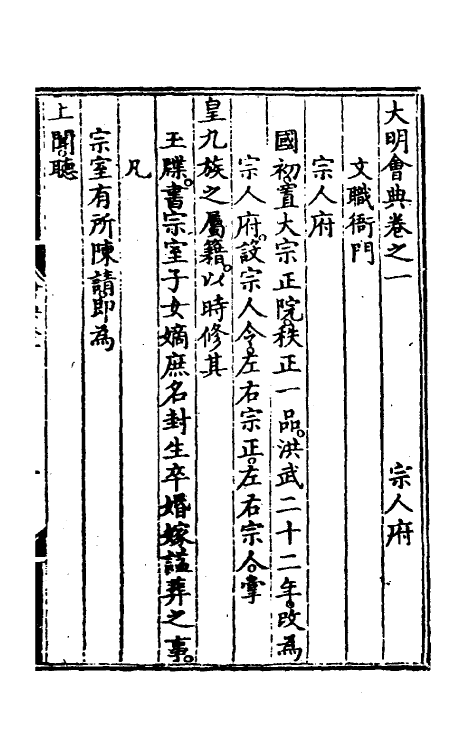 大明會典卷之一　宗人府
文職衙門
宗人府
國初。置大宗正院。秩正一品。洪武二十二年。改為
宗人府。設宗人令。左右宗正。左右宗人。掌
皇九族之屬籍。以時修其
玉牒。書宗室子女嫡庶名封生卒婚嫁謚葬之事。
凡
宗室有所陳請即為
上聞。聽